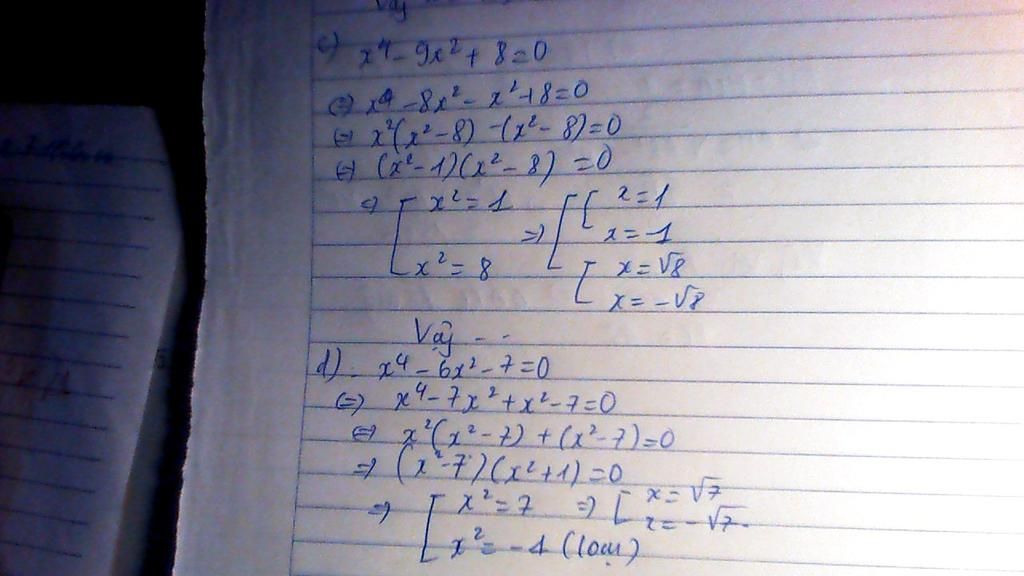 c) x⁴ - 9x² + 8 = 0
<=> x⁴ - 8x² - x² + 8 = 0
<=> x²(x² - 8) - (x² - 8) = 0
<=> (x² - 1)(x² - 8) = 0
=> [ x² = 1 => [ [ x = 1
x = -1
x² = 8 [ x = √8
x = -√8
Vậy - -
d) x⁴ - 6x² - 7 = 0
<=> x⁴ - 7x² + x² - 7 = 0
<=> x²(x² - 7) + (x² - 7) = 0
=> (x² - 7)(x² + 1) = 0
=> [ x² = 7 => [ x = √7
x = -√7
x² = -1 (loại)